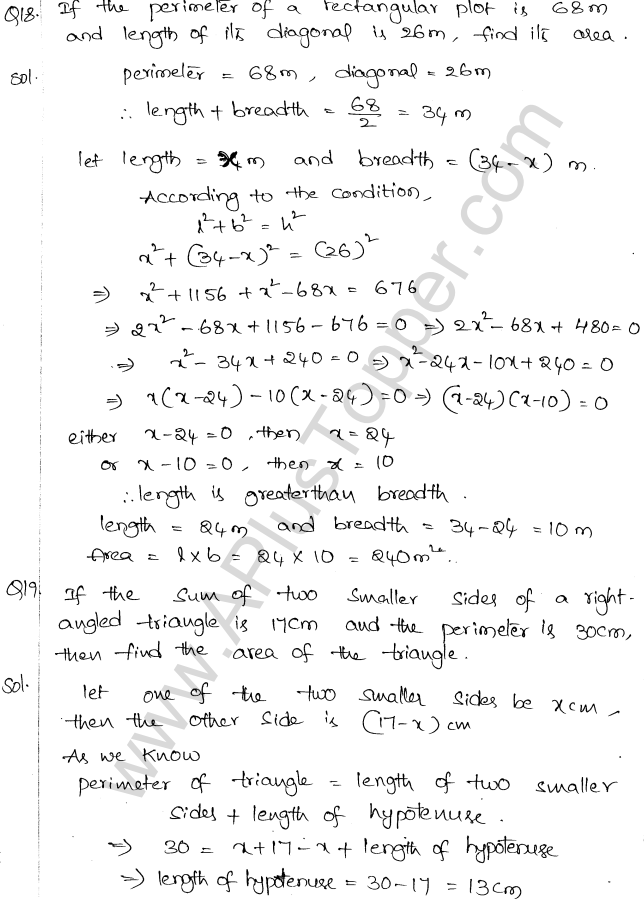 Q18. If the perimeter of a rectangular plot is 68m
and length of its diagonal is 26m, find its area.
Sol. perimeter = 68m, diagonal = 26m
∴ length + breadth = 68/2 = 34 m
let length = x m and breadth = (34-x) m.
According to the condition,
l² + b² = h²
x² + (34-x)² = (26)²
⇒ x² + 1156 + x² - 68x = 676
⇒ 2x² - 68x + 1156 - 676 = 0 ⇒ 2x² - 68x + 480 = 0
⇒ x² - 34x + 240 = 0 ⇒ x² - 24x - 10x + 240 = 0
⇒ x(x-24) - 10(x-24) = 0 ⇒ (x-24)(x-10) = 0
either x-24 = 0, then x = 24
or x-10 = 0, then x = 10
∴ length is greater than breadth.
length = 24m and breadth = 34-24 = 10 m
Area = l×b = 24×10 = 240m²..
Q19. If the sum of two smaller sides of a right-
angled triangle is 17cm and the perimeter is 30cm,
then find the area of the triangle.
Sol. let one of the two smaller sides be x cm,
then the other side is (17-x) cm
As we know
perimeter of triangle = length of two smaller
sides + length of hypotenuse.
⇒ 30 = x+17-x + length of hypotenuse
⇒ length of hypotenuse = 30-17 = 13cm
www.APlusTopper.com